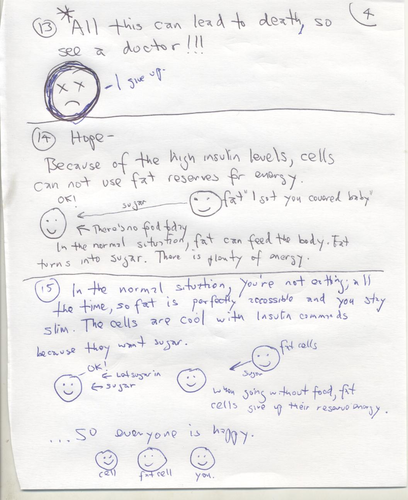 4
13 *All this can lead to death, so
see a doctor!!!
- I give up.
14 Hope-
Because of the high insulin levels, cells
can not use fat reserves for energy.
OK!
sugar
fat "I got you covered baby"
There's no food today
In the normal situation, fat can feed the body. Fat
turns into sugar. There is plenty of energy.
15 In the normal situation, you're not eating all
the time, so fat is perfectly accessible and you stay
slim. The cells are cool with Insulin commands
because they want sugar.
fat cells
OK!
Let sugar in
sugar
sugar
When going without food, fat
cells give up their reserve energy.
...so everyone is happy.
cell fat cell you.